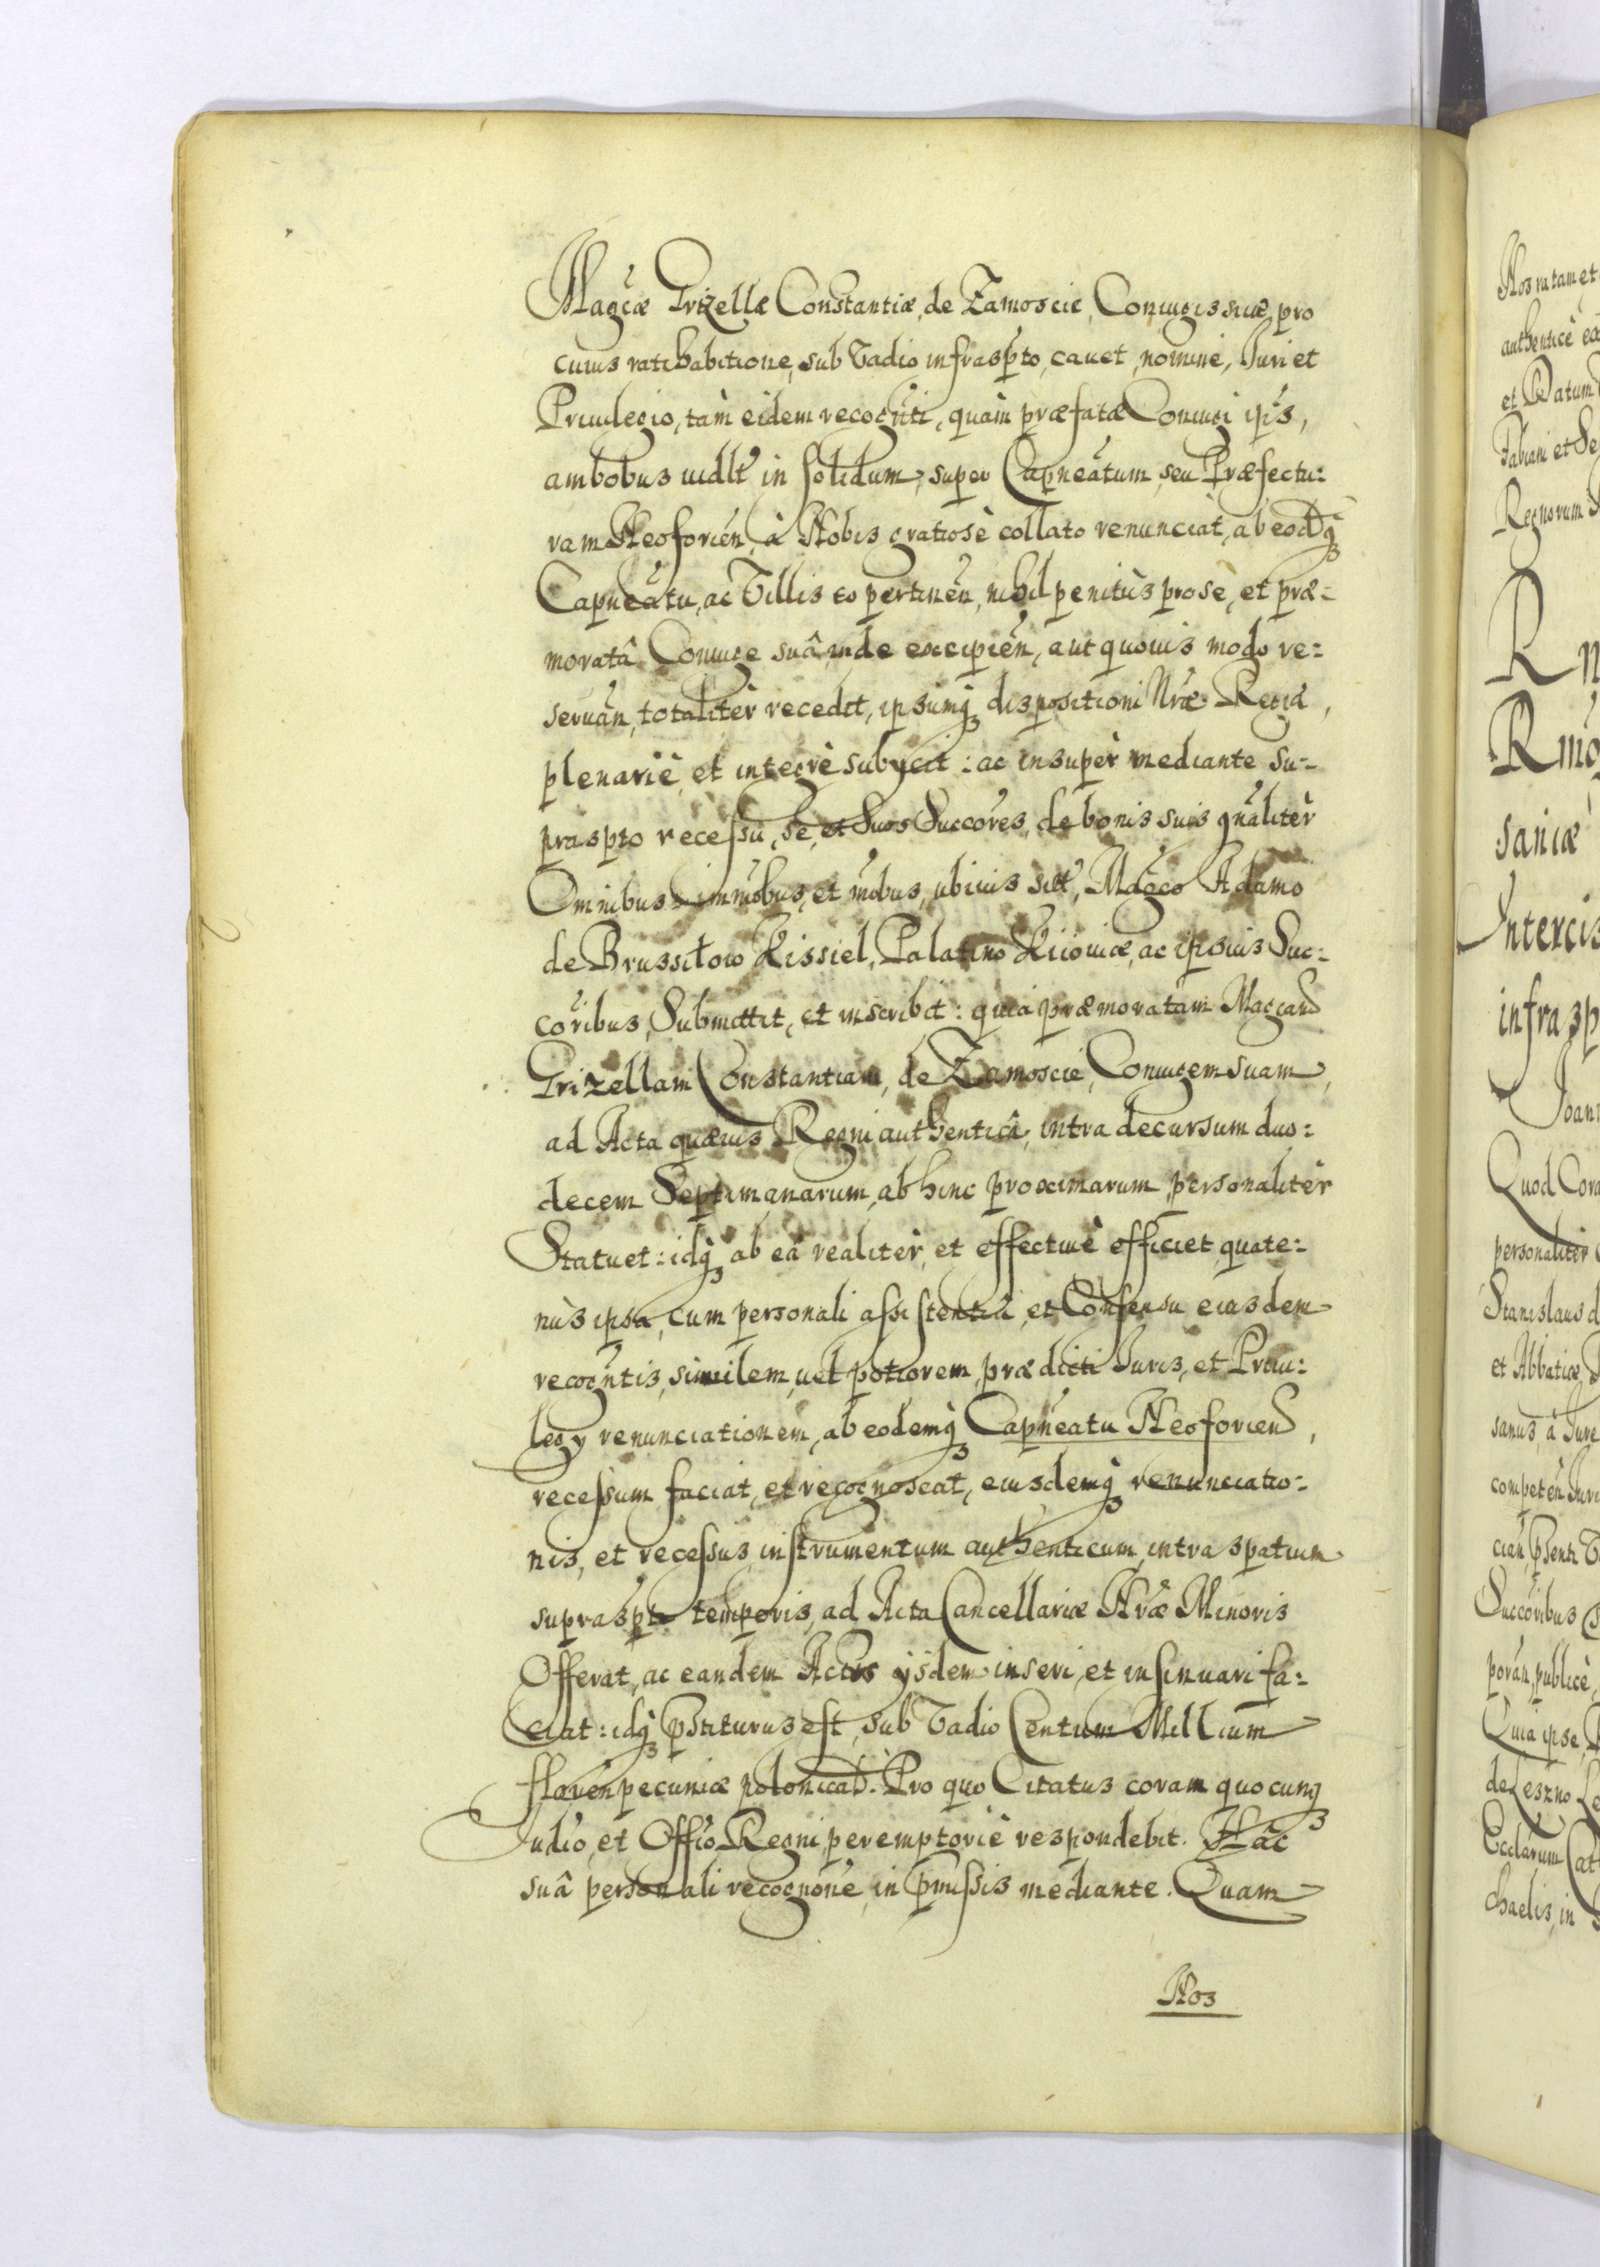 Magcæ Grizellæ Constantiæ, de Zamoscie, Coniugis suæ, pro
cuius ratihabitione, sub Vadio infraspto, cauet, nomine, Iuri et
Priuilegio, tàm eidem recognti, quàm præfatæ Coniugi ips,
ambobus uidlt in solidum, super Capneatum, seu Præfectu:
ram Neoforien, à Nobis gratiosè collato renunciat, ab eodq
Capneatu, ac Villis eo pertinen, nihil penitùs pro se, et præ:
moratâ Coniuge suâ inde excipien, aut quouis modo re:
seruan, totaliter recedit, ipsumq dispositioni Nræ Regiæ,
plenariè, et integrè subycit: ac insupèr mediante su:
praspto recessu, se, et Suos Succores, de bonis suis gnalitèr
Omnibus immobus, et mobus, ubiuis sitt, Magco Adamo
de Brussiłow Kissiel, Palatino Kiiouiæ, ac ipsius Suc:
coribus, Submittit, et inscribit: quia præmoratam Magcam
Grizellam Constantiam, de Zamoscie, Coniugem suam,
ad Acta quæuis Regni authentica, intra decursum duo:
decem Septimanarum, ab hinc proximarum, personalitèr
Statuet: idq ab eâ realitèr, et effectiuè efficiet, quate:
nùs ipsa, cum personali assistentiâ, et Consensu eiusdem
recogntis, similem, uel potiorem, prædicti Iuris, et Priui:
legy renunciationem, ab eodemq Capneatu Neoforien,
recessum faciat, et recognoscat, eiusdemq renunciatio:
nis, et recessus, instrumentum authenticum, intra spatium
supraspti temporis, ad Acta Cancellariæ Nræ Minoris
Offerat, ac eandem Actis ysdem inseri, et insinuari fa:
ciat: idq pstiturus est, sub Vadio Centum Millium
floren pecuniæ polonical. Pro quo Citatus coram quocunq
Iudio, et Offio Regni, peremptoriè respondebit. Hâc
suâ personali recognone, in pmissis mediante. Quam
Nos
Nos ratam et
authenticè
et Datum
Fabiani et Se
Regnorum
saniæ
Intercis
infrasp
Ioan
Quod Cora
personalitèr
Stanislaus d
et Abbatiæ
sanus, à Iure
competen Iuri
cian, psenti
Succoribus
poran, publicè,
Quia ipse,
de Leszno Le
Ecclarum Cat
chaelis, in